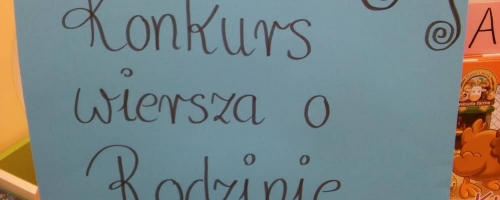 Konkurs
wiersza o
Rodzinie
A